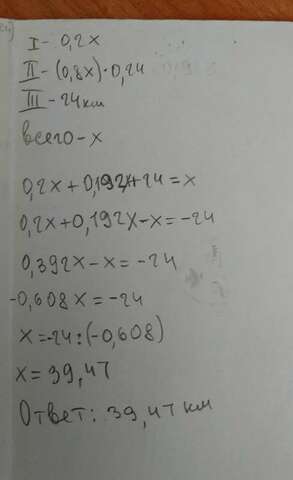 I - 0,2x
II - (0,8x)·0,24
III - 24км
всего - x
0,2x+0,192x+24=x
0,2x+0,192x-x=-24
0,392x-x=-24
-0,608x=-24
x=-24:(-0,608)
x=39,47
Ответ: 39,47 км